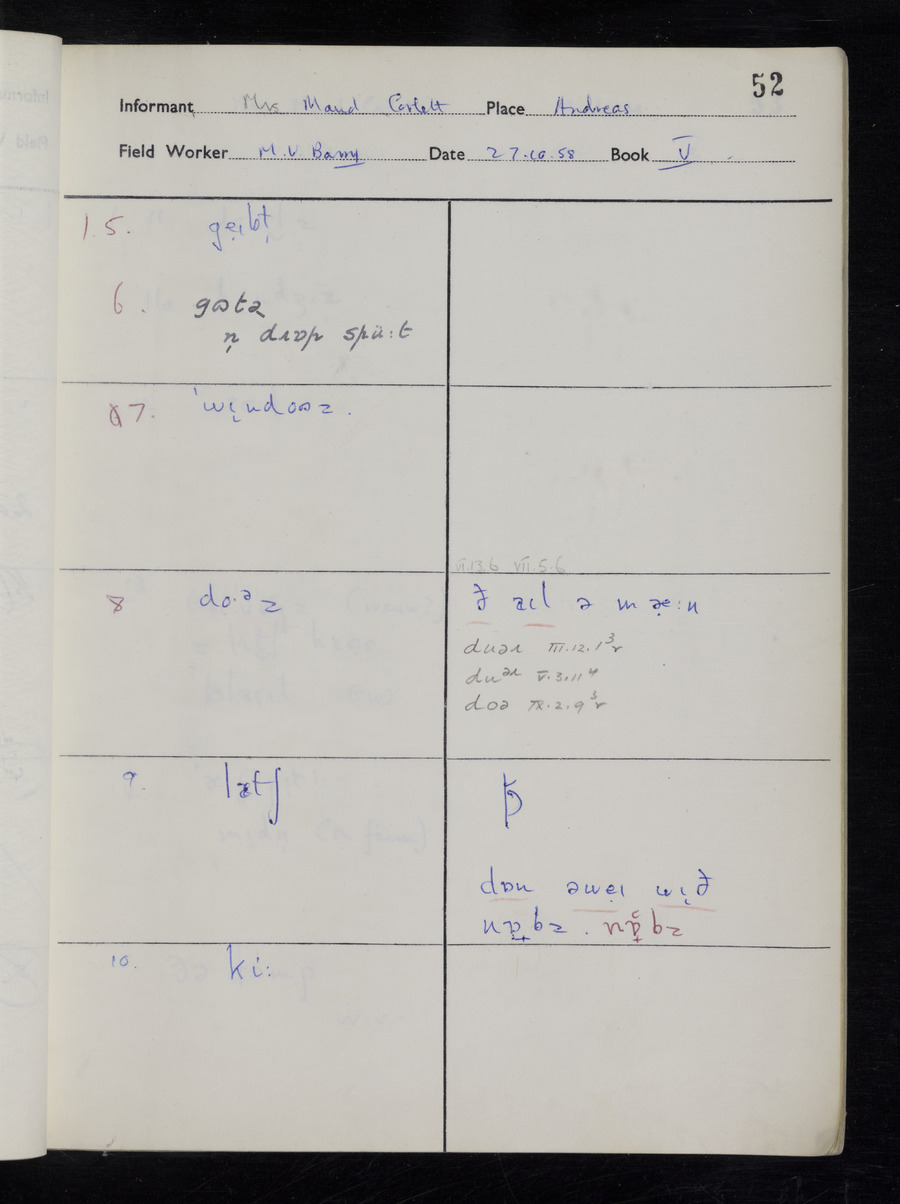 52
Informant, Mrs Maud Corlett Place Andreas
Field Worker M.V Barry Date 27.10.58 Book V
1 5. geɪbɫ̩
6. gɒtə
n̩ dɹɒp spü:t
7. ˈwɪ̞ndɷz.
VI.13.6 VII.5.6
8 do·ᵊz
ð aɪl ə m æ:n
duəɹ III.12.1³r
duᵊɹ V.3.11⁴
doə IX.2.9³r
9. latʃ
dɒn əweɪ wɪ̞ð
10. ki: